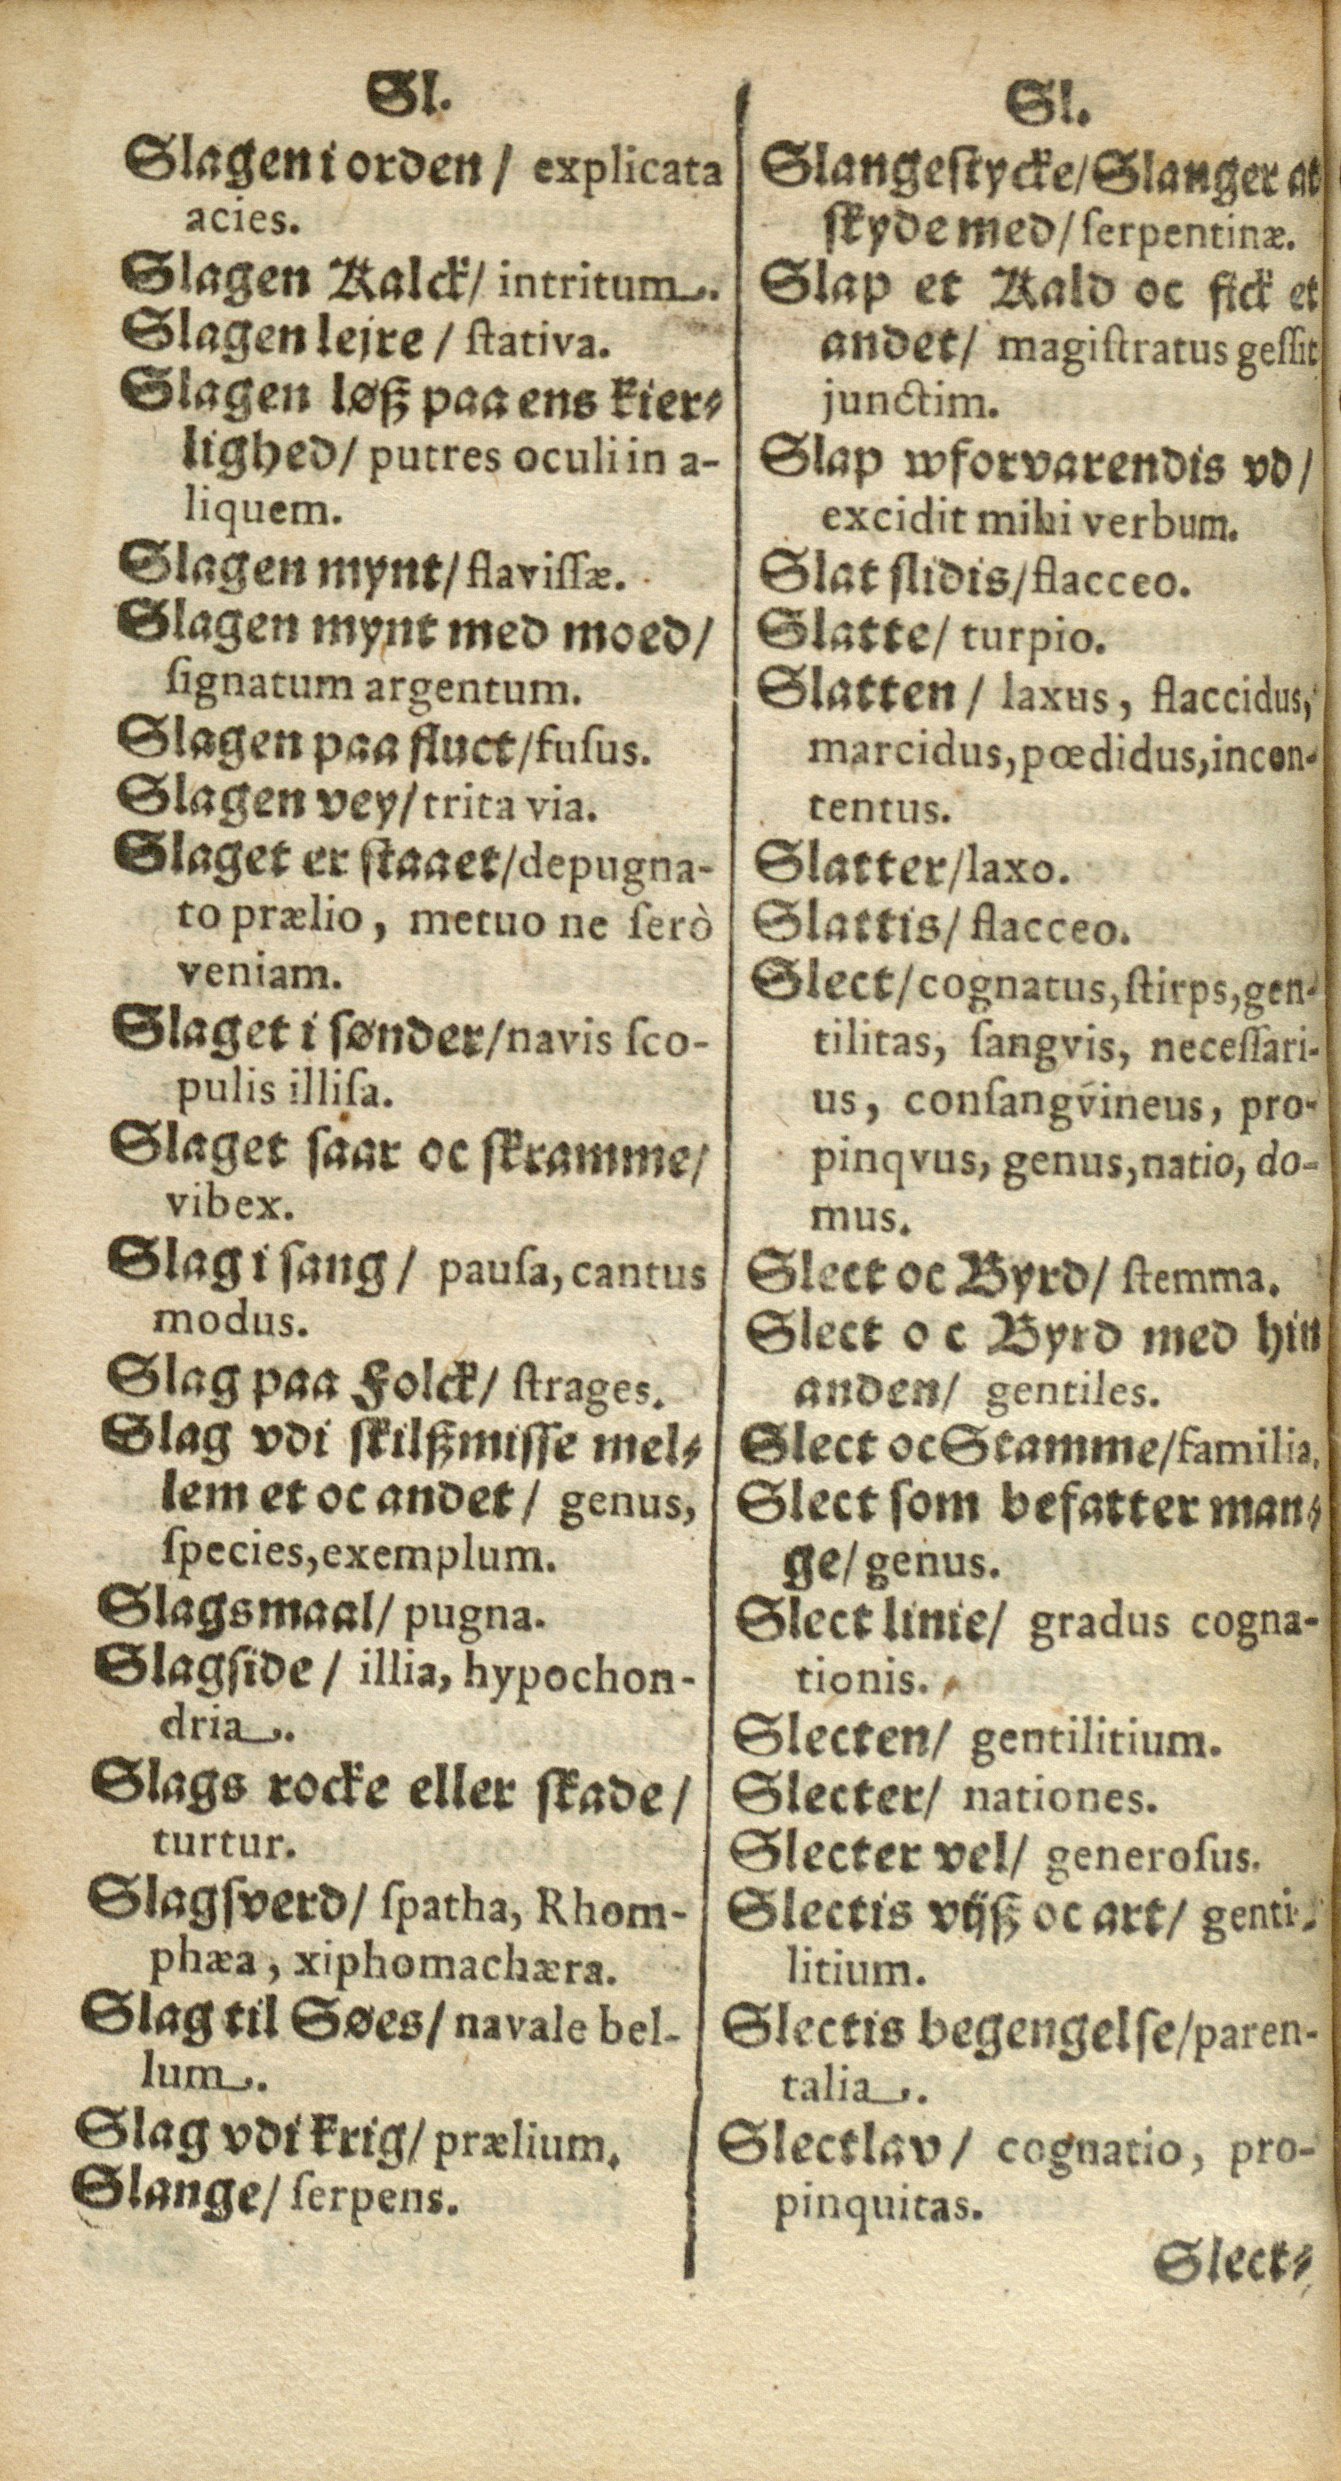 Sl.
Slagen i orden / explicata
acies.
Slagen Kalck / intritum.
Slagen lejre / ſtativa.
Slagen løß paa ens kier⸗
lighed / putres oculi in a-
liquem.
Slagen mynt / flaviſſæ.
Slagen mynt med moed /
ſignatum argentum.
Slagen paa fluct / fuſus.
Slagen vey / trita via.
Slaget er ſtaaet / depugna-
to prælio, metuo ne ſerò
veniam.
Slaget i ſønder / navis ſco-
pulis illiſa.
Slaget ſaar oc ſkramme /
vibex.
Slag i ſang / pauſa, cantus
modus.
Slag paa Folck / ſtrages.
Slag vdi ſkilßmiſſe mel⸗
lem et oc andet / genus,
ſpecies, exemplum.
Slagsmaal / pugna.
Slagſide / illia, hypochon-
dria.
Slags rocke eller ſkade /
turtur.
Slagſverd / ſpatha, Rhom-
phæa, xiphomachæra.
Slag til Søes / navale bel-
lum.
Slag vdi krig / prælium.
Slange / ſerpens.
Sl.
Slangeſtycke / Slanger at
ſkyde med / ſerpentinæ.
Slap et Kald oc fick et
andet / magiſtratus geſſit
junctim.
Slap wforvarendis vd /
excidit mihi verbum.
Slat ſlidis / flacceo.
Slatte / turpio.
Slatten / laxus, flaccidus,
marcidus, pœdidus, incon-
tentus.
Slatter / laxo.
Slattis / flacceo.
Slect / cognatus, ſtirps, gen-
tilitas, ſangvis, neceſſari-
us, conſangvineus, pro-
pinqvus, genus, natio, do-
mus.
Slect oc Byrd / ſtemma.
Slect oc Byrd med hin
anden / gentiles.
Slect oc Stamme / familia.
Slect ſom befatter man⸗
ge / genus.
Slect linie / gradus cogna-
tionis.
Slecten / gentilitium.
Slecter / nationes.
Slecter vel / generoſus.
Slectis vijß oc art / genti-
litium.
Slectis begengelſe / paren-
talia.
Slectlav / cognatio, pro-
pinquitas.
Slect⸗